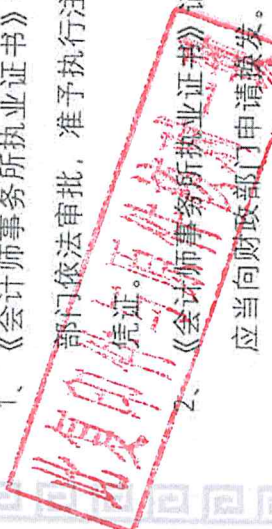 1、《会计师事务所执业证书》
部门依法审批，准予执行注
凭证。
2、《会计师事务所执业证书》记
应当向财政部门申请换发。